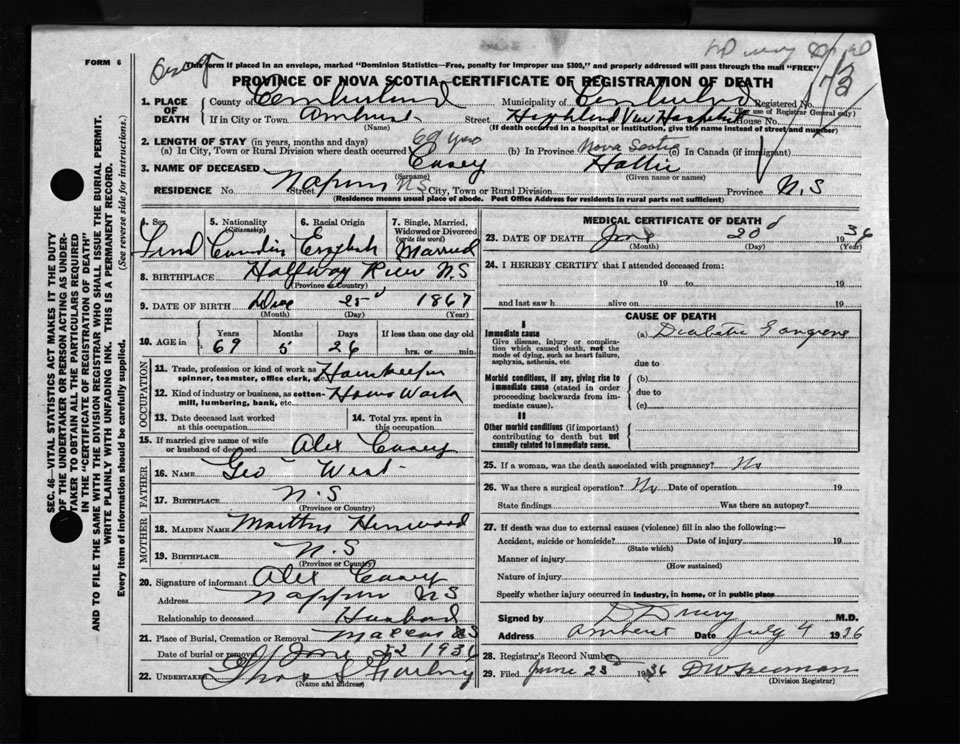 FORM 6
This form if placed in an envelope, marked "Dominion Statistics—Free, penalty for improper use $300," and properly addressed will pass through the mail "FREE"
PROVINCE OF NOVA SCOTIA—CERTIFICATE OF REGISTRATION OF DEATH
13
1. PLACE OF DEATH County of Cumberland Municipality of Cumberland Registered No.
(For use of Registrar General only)
If in City or Town Amherst Street Highland View Hospital House No.
(Name) (If death occurred in a hospital or institution, give the name instead of street and number)
2. LENGTH OF STAY (in years, months and days)
(a) In City, Town or Rural Division where death occurred 69 yrs (b) In Province Nova Scotia (c) In Canada (if immigrant)
3. NAME OF DECEASED Casey Hattie
(Surname) (Given name or names)
RESIDENCE No. Street Nappan N S City, Town or Rural Division Province N.S
(Residence means usual place of abode. Post Office Address for residents in rural parts not sufficient)
4. Sex 5. Nationality (Citizenship) 6. Racial Origin 7. Single, Married, Widowed or Divorced (write the word)
English Married
8. BIRTHPLACE Halfway River N.S
(Province or Country)
9. DATE OF BIRTH 25 1867
(Month) (Day)
10. AGE in Years Months Days If less than one day old
69 5 26 hrs. or min.
OCCUPATION
11. Trade, profession or kind of work as spinner, teamster, office clerk, etc. Housekeeper
12. Kind of industry or business, as cotton-mill, lumbering, bank, etc. House Work
13. Date deceased last worked at this occupation
14. Total yrs. spent in this occupation
15. If married give name of wife or husband of deceased Alex Casey
FATHER
16. NAME Geo West
17. BIRTHPLACE N.S
(Province or Country)
MOTHER
18. MAIDEN NAME Henwood
19. BIRTHPLACE N.S
(Province or Country)
20. Signature of informant Alex Casey
Address Nappan NS
Relationship to deceased Husband
21. Place of Burial, Cremation or Removal N S
Date of burial or removal June 22 1936
22. UNDERTAKER
(Name and address)
MEDICAL CERTIFICATE OF DEATH
23. DATE OF DEATH June 20 1936
(Month) (Day) (Year)
24. I HEREBY CERTIFY that I attended deceased from:
19 to 19
and last saw h alive on 19
CAUSE OF DEATH
I
Immediate cause (a) Diabetic Gangrene
Give disease, injury or complication which caused death, not the mode of dying, such as heart failure, asphyxia, asthenia, etc.
due to
Morbid conditions, if any, giving rise to immediate cause (stated in order proceeding backwards from immediate cause).
(b)
due to
(c)
II
Other morbid conditions (if important) contributing to death but not causally related to immediate cause.
25. If a woman, was the death associated with pregnancy? No
26. Was there a surgical operation? No Date of operation 19
State findings Was there an autopsy?
27. If death was due to external causes (violence) fill in also the following:—
Accident, suicide or homicide? Date of injury 19
(State which)
Manner of injury
(How sustained)
Nature of injury
Specify whether injury occurred in industry, in home, or in public place
Signed by D Drury M.D.
Address Amherst Date July 4 1936
28. Registrar's Record Number
29. Filed June 23 1936
(Division Registrar)
SEC. 46—VITAL STATISTICS ACT MAKES IT THE DUTY
OF THE UNDERTAKER OR PERSON ACTING AS UNDER-
TAKER TO OBTAIN ALL THE PARTICULARS REQUIRED
IN THE "CERTIFICATE OF REGISTRATION OF DEATH"
AND TO FILE THE SAME WITH THE DIVISION REGISTRAR WHO SHALL ISSUE THE BURIAL PERMIT.
WRITE PLAINLY WITH UNFADING INK. THIS IS A PERMANENT RECORD.
Every item of information should be carefully supplied. (See reverse side for instructions.)